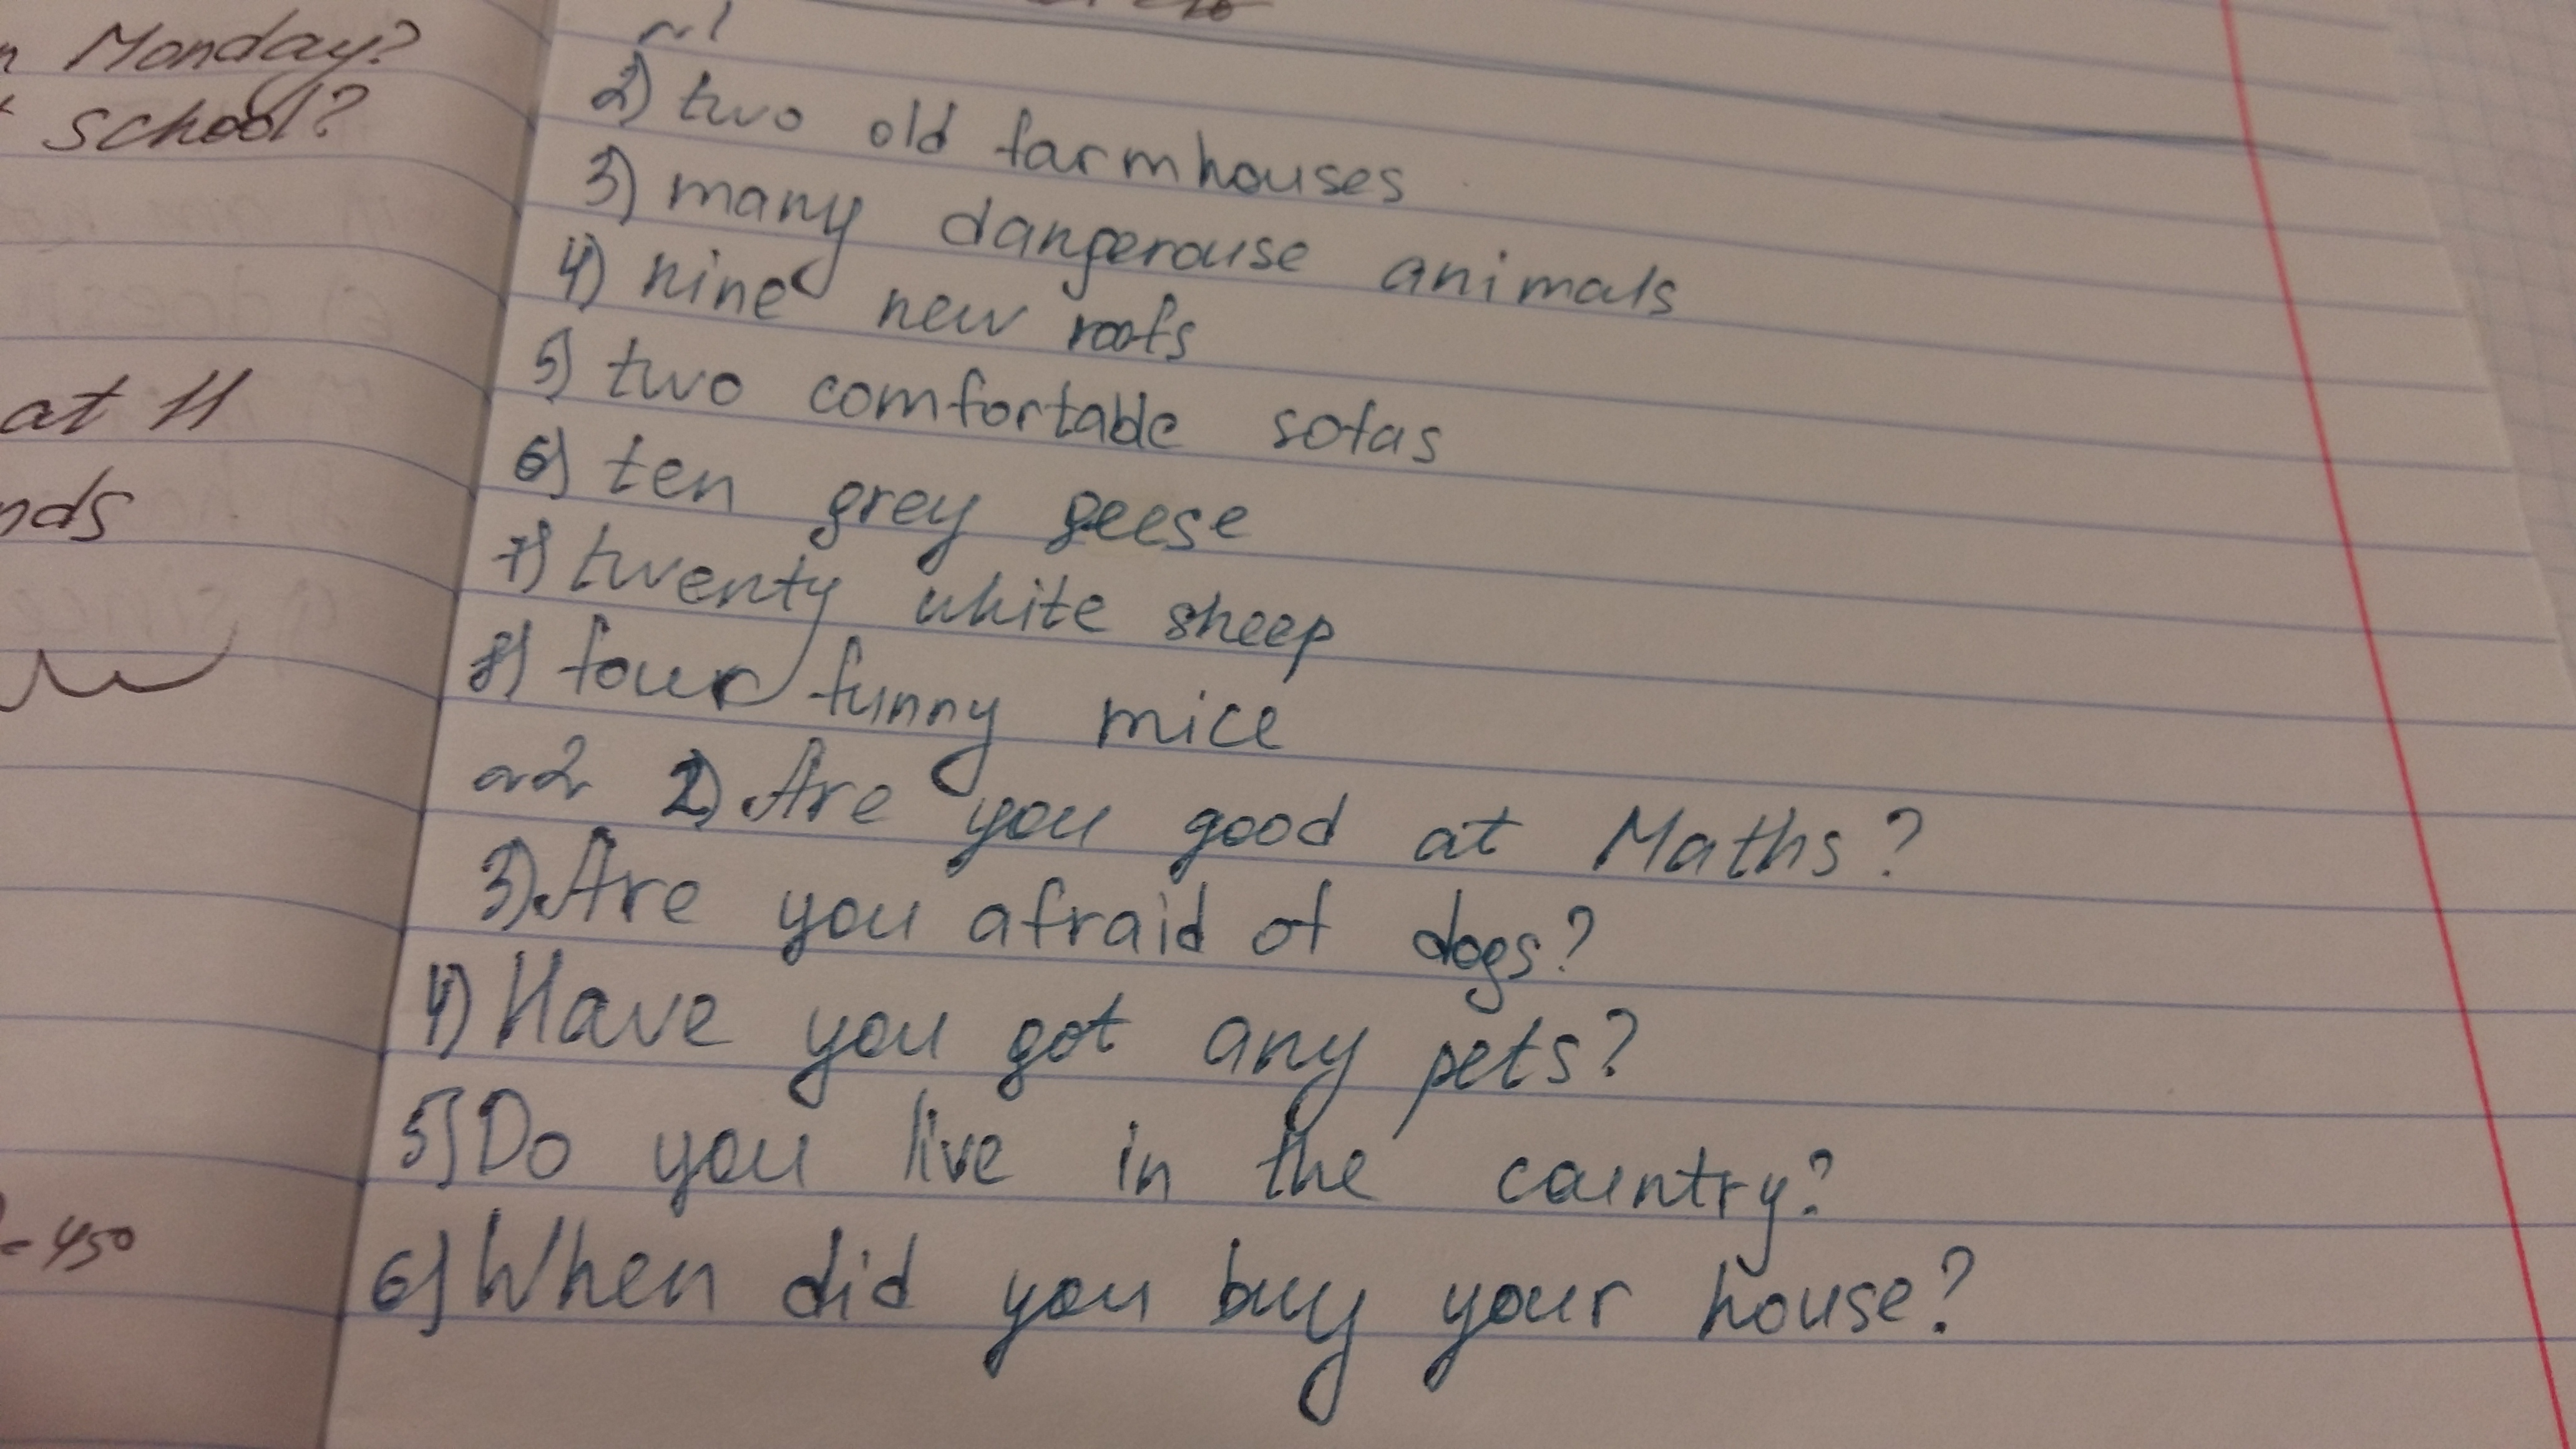 Monday?
school?
at 11
nds
- 450
~1
2) two old farmhouses
3) many dangerouse animals
4) nine new roofs
5) two comfortable sofas
6) ten grey geese
7) twenty white sheep
8) four funny mice
~2 2) Are you good at Maths?
3) Are you afraid of dogs?
4) Have you got any pets?
5) Do you live in the country?
6) When did you buy your house?